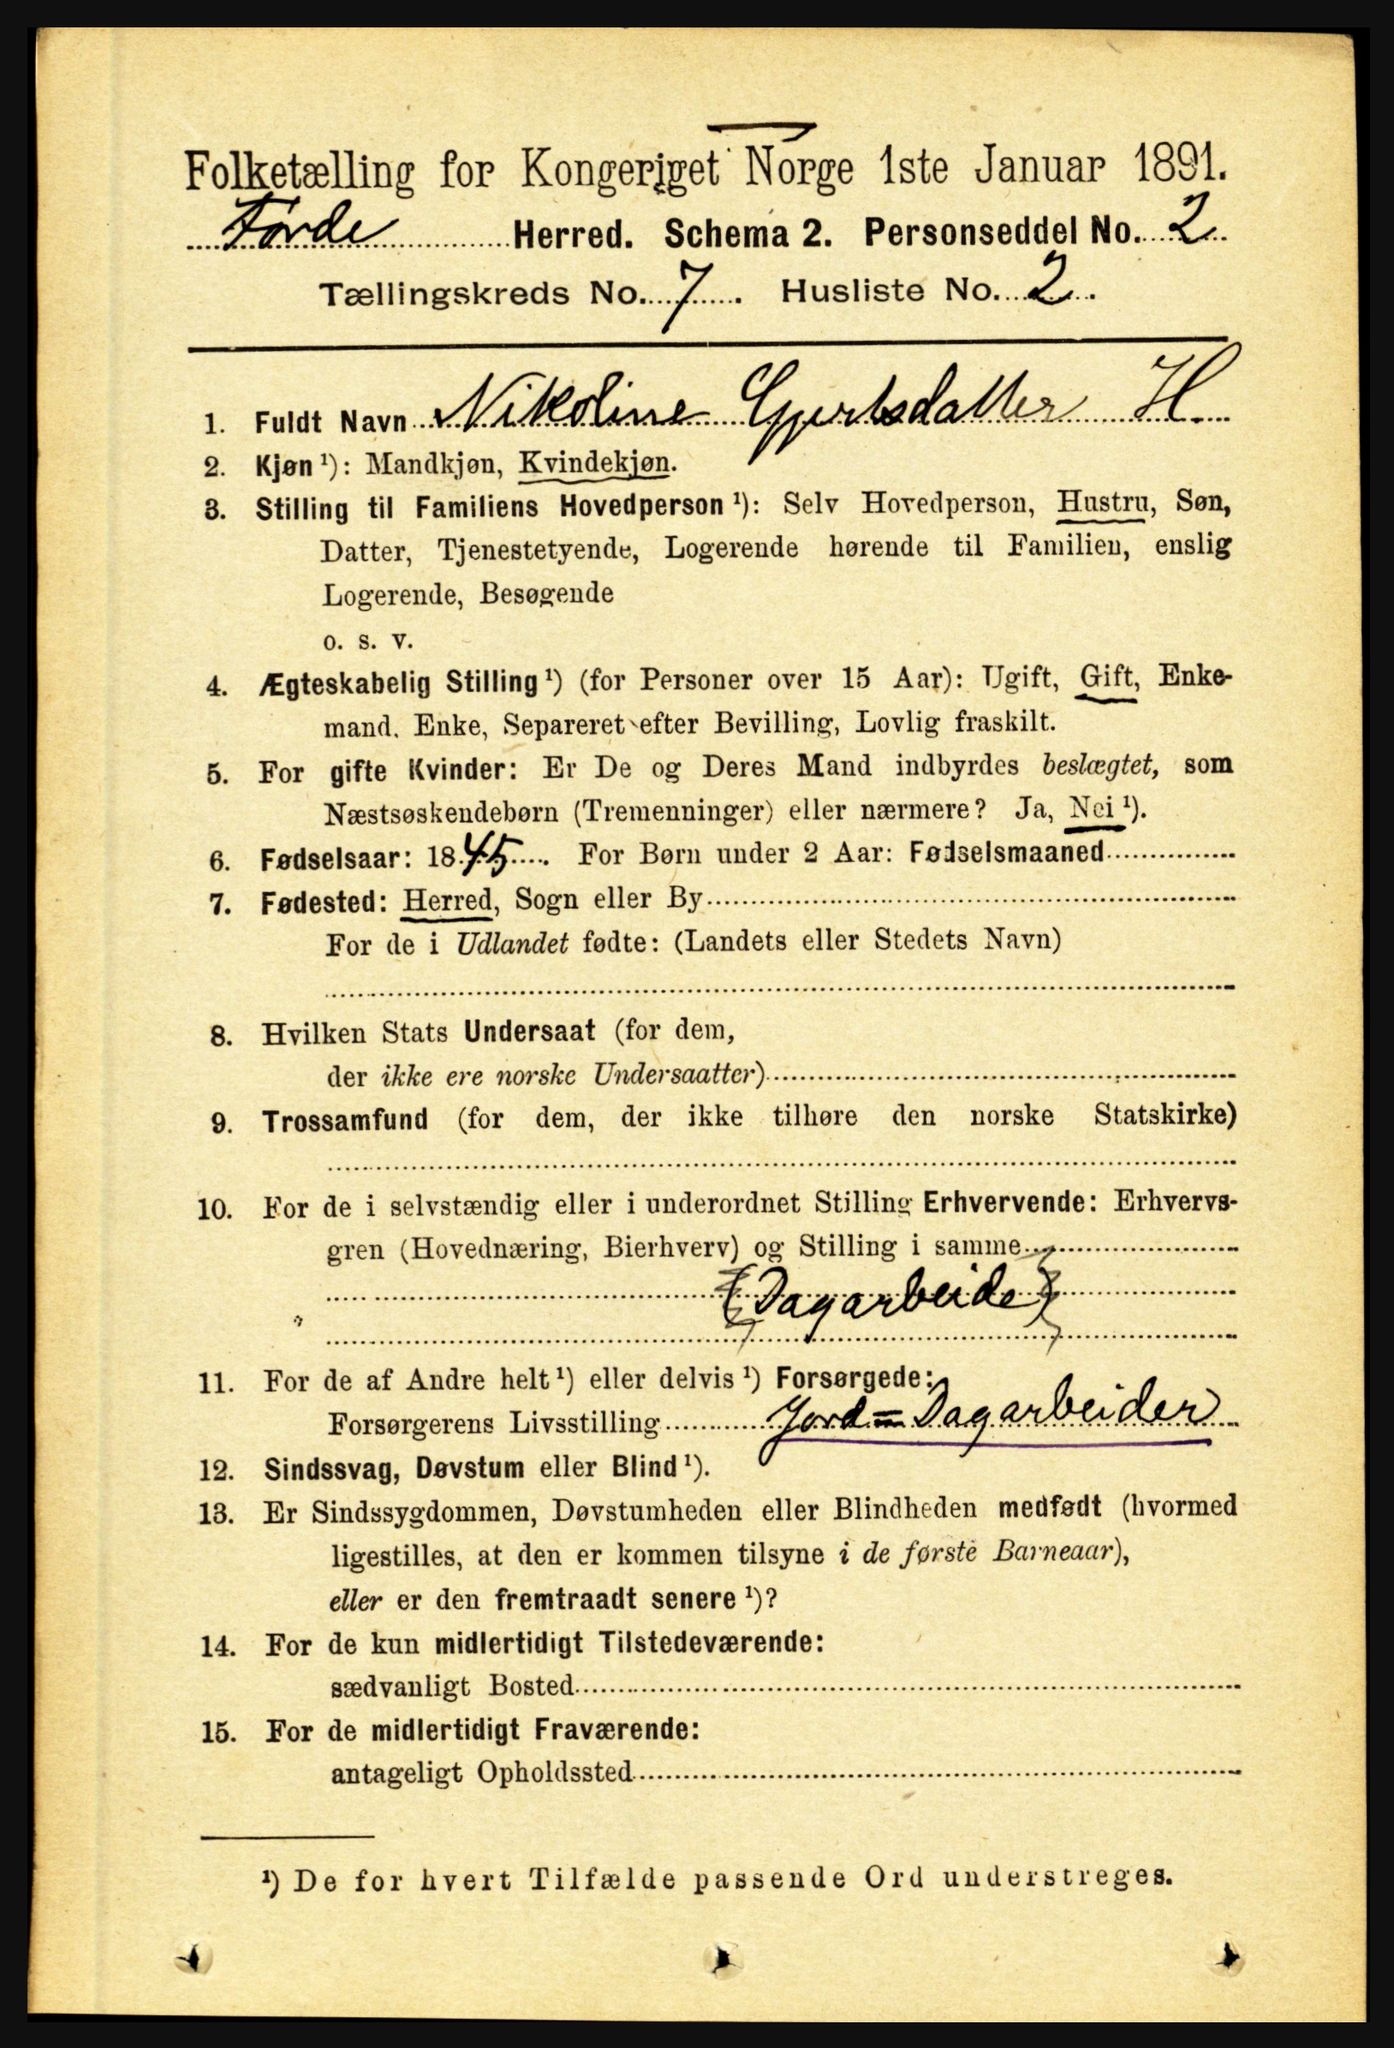 Folketælling for Kongeriget Norge 1ste Januar 1891.
Førde Herred. Schema 2. Personseddel No. 2
Tællingskreds No. 7. Husliste No. 2.
1. Fuldt Navn Nikoline Gjertsdatter H.
2. Kjøn ¹): Mandkjøn, Kvindekjøn.
3. Stilling til Familiens Hovedperson ¹): Selv Hovedperson, Hustru, Søn,
Datter, Tjenestetyende, Logerende hørende til Familien, enslig
Logerende, Besøgende
o. s. v.
4. Ægteskabelig Stilling ¹) (for Personer over 15 Aar): Ugift, Gift, Enke-
mand. Enke, Separeret efter Bevilling, Lovlig fraskilt.
5. For gifte Kvinder: Er De og Deres Mand indbyrdes beslægtet, som
Næstsøskendebørn (Tremenninger) eller nærmere? Ja, Nei ¹).
6. Fødselsaar: 1845. For Børn under 2 Aar: Fødselsmaaned
7. Fødested: Herred, Sogn eller By
For de i Udlandet fødte: (Landets eller Stedets Navn)
8. Hvilken Stats Undersaat (for dem,
der ikke ere norske Undersaatter)
9. Trossamfund (for dem, der ikke tilhøre den norske Statskirke)
10. For de i selvstændig eller i underordnet Stilling Erhvervende: Erhvervs-
gren (Hovednæring, Bierhverv) og Stilling i samme
(Dagarbeide)
11. For de af Andre helt ¹) eller delvis ¹) Forsørgede:
Forsørgerens Livsstilling Jord=Dagarbeider
12. Sindssvag, Døvstum eller Blind ¹).
13. Er Sindssygdommen, Døvstumheden eller Blindheden medfødt (hvormed
ligestilles, at den er kommen tilsyne i de første Barneaar),
eller er den fremtraadt senere ¹)?
14. For de kun midlertidigt Tilstedeværende:
sædvanligt Bosted
15. For de midlertidigt Fraværende:
antageligt Opholdssted
¹) De for hvert Tilfælde passende Ord understreges.